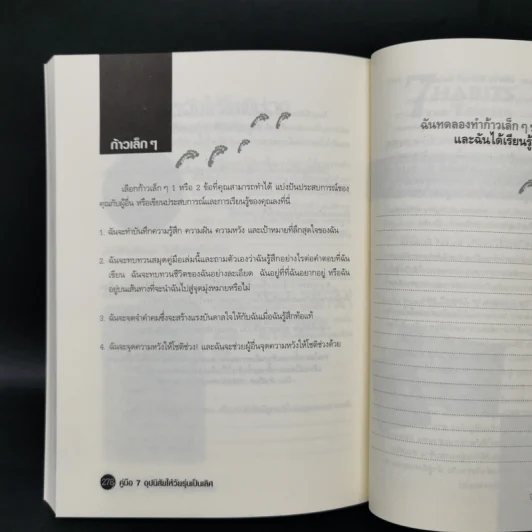 ก้าวเล็ก ๆ
เลือกก้าวเล็ก ๆ 1 หรือ 2 ข้อที่คุณสามารถทำได้ แบ่งปันประสบการณ์ของ
คุณกับผู้อื่น หรือเขียนประสบการณ์และการเรียนรู้ของคุณลงที่นี่
1. ฉันจะทำบันทึกความรู้สึก ความฝัน ความหวัง และเป้าหมายที่ลึกสุดใจของฉัน
2. ฉันจะทบทวนสมุดคู่มือเล่มนี้และถามตัวเองว่าฉันรู้สึกอย่างไรต่อคำตอบที่ฉัน
เขียน ฉันจะทบทวนชีวิตของฉันอย่างละเอียด ฉันอยู่ที่ที่ฉันอยากอยู่ หรือฉัน
อยู่บนเส้นทางที่จะนำฉันไปสู่จุดมุ่งหมายหรือไม่
3. ฉันจะจดจำคำคมซึ่งจะสร้างแรงบันดาลใจให้กับฉันเมื่อฉันรู้สึกท้อแท้
4. ฉันจะจุดความหวังให้โชติช่วง! และฉันจะช่วยผู้อื่นจุดความหวังให้โชติช่วงด้วย
278 คู่มือ 7 อุปนิสัยให้วัยรุ่นเป็นเลิศ
ฉันทดลองทำก้าวเล็ก ๆ
และฉันได้เรียนรู้